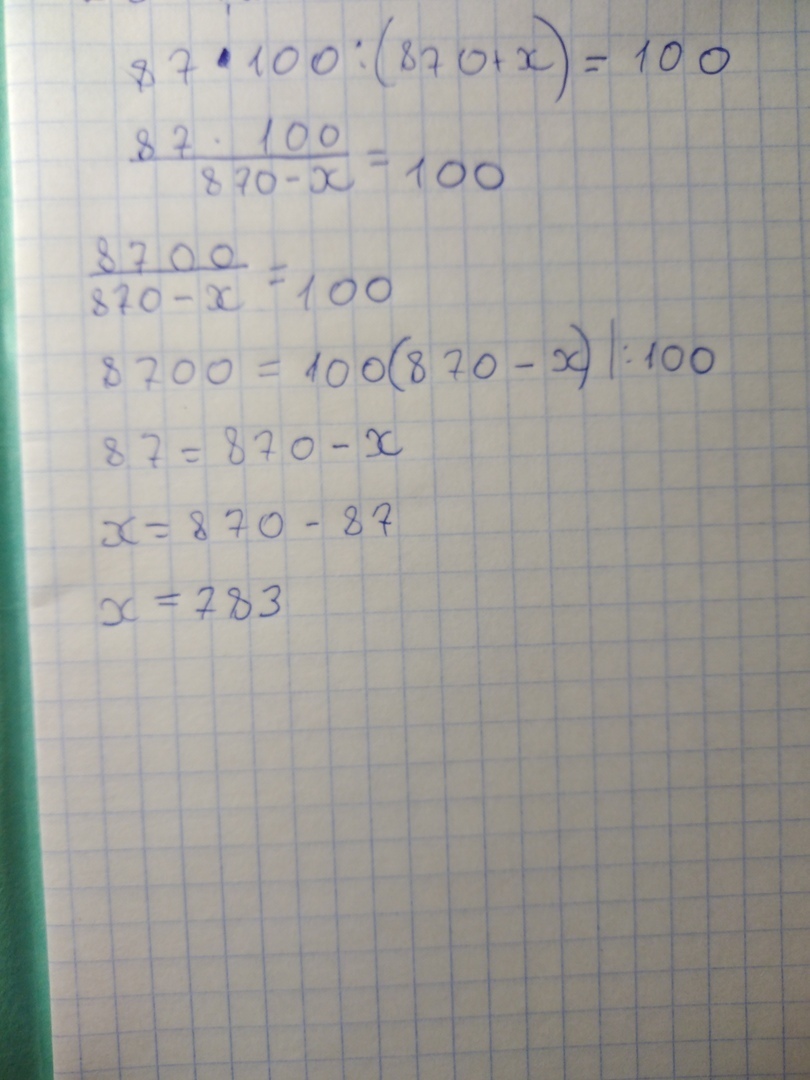 87 · 100 : (870 + x) = 100
87 · 100 / 870 - x = 100
8700 / 870 - x = 100
8700 = 100(870 - x) | : 100
87 = 870 - x
x = 870 - 87
x = 783